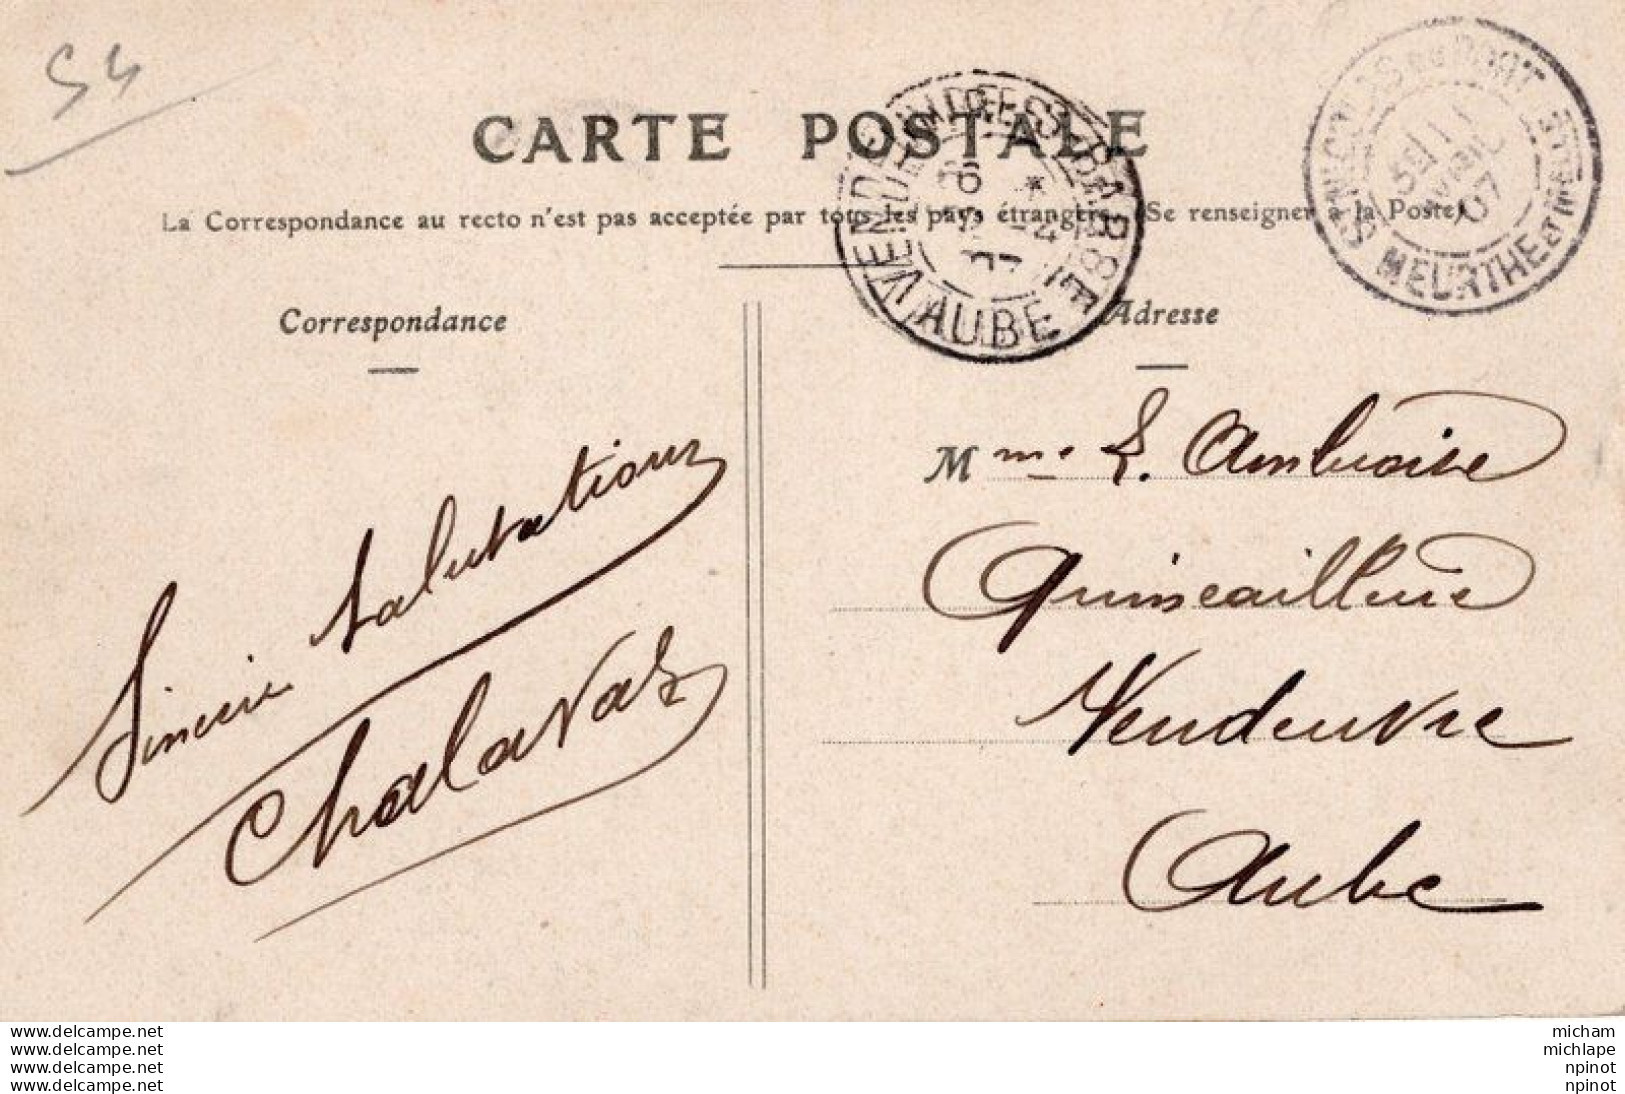 54
CARTE POSTALE
La Correspondance au recto n'est pas acceptée par tous les pays étrangers. (Se renseigner à la Poste)
Correspondance
Adresse
VENDEUVRE-S-BARSE
AUBE
ST NICOLAS DU PORT
MEURTHE ET M
AVRIL
07
Mme L. Ambroise
Quincaillerie
Vendeuvre
Aube
Sincères salutations
www.delcampe.net
www.delcampe.net
www.delcampe.net
www.delcampe.net
micham
michlape
npinot
npinot